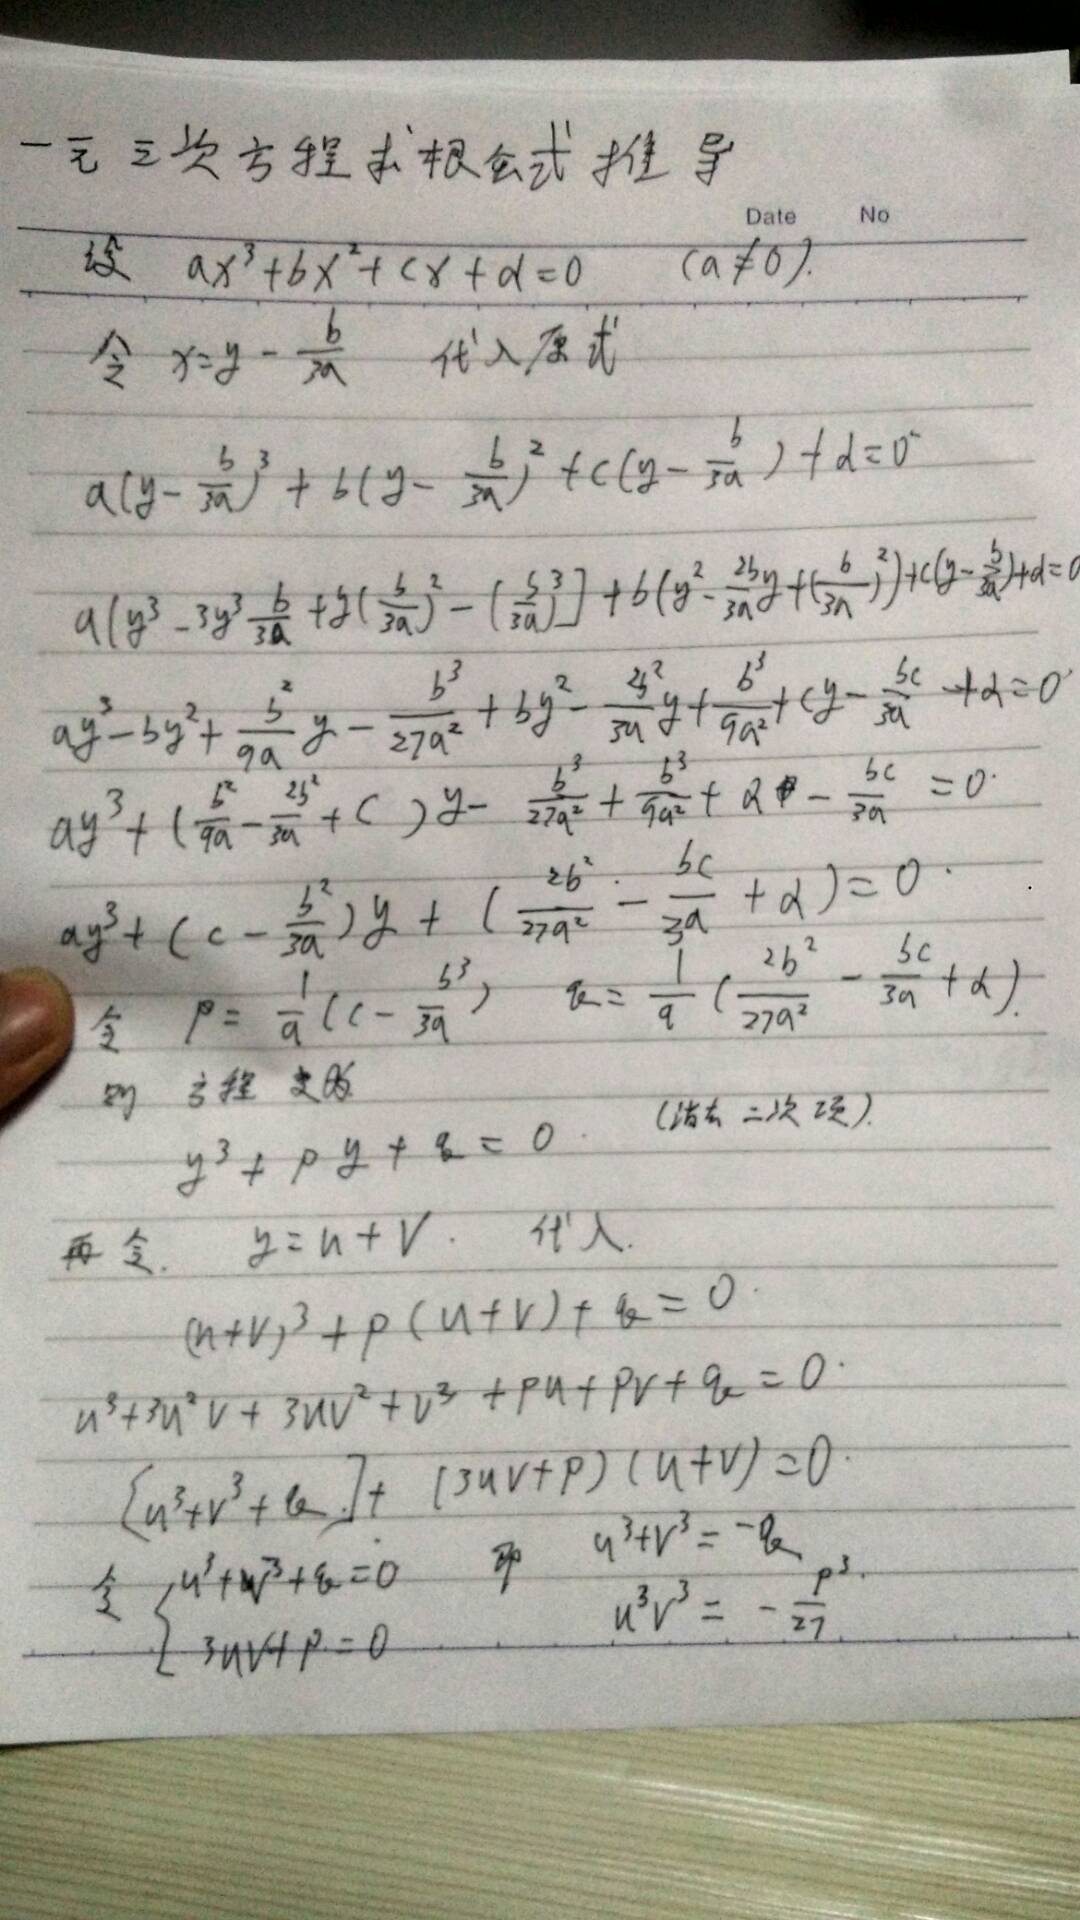 一元三次方程求根公式推导
Date No
设 ax³+bx²+cx+d=0 (a≠0).
令 x=y-b/3a 代入原式
a(y-b/3a)³+b(y-b/3a)²+c(y-b/3a)+d=0
a[y³-3y³b/3a+y(b/3a)²-(b/3a)³]+b(y²-2by/3a+(b/3a)²)+c(y-b/3a)+d=0
ay³-by²+b²/9a y-b³/27a²+by²-2b²/3a y+b³/9a²+cy-bc/3a+d=0
ay³+(b²/9a-2b²/3a+c)y-b³/27a²+b³/9a²+d-bc/3a=0.
ay³+(c-b²/3a)y+(2b²/27a²-bc/3a+d)=0.
令 p=1/a(c-b³/3a) q=1/a(2b²/27a²-bc/3a+d).
则方程变为
y³+py+q=0. (消去二次项).
再令. y=u+v. 代入.
(u+v)³+p(u+v)+q=0.
u³+3u²v+3uv²+v³+pu+pv+q=0.
[u³+v³+q]+(3uv+p)(u+v)=0.
令 {u³+v³+q=0 即 u³+v³=-q
3uv+p=0 u³v³=-p³/27.